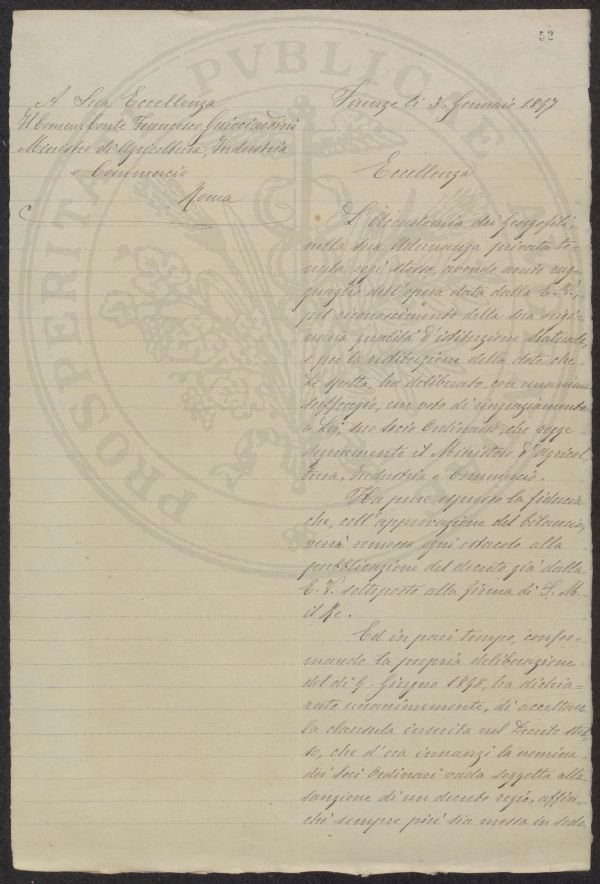 52
Firenze li 3. Gennaio 1897
A Sua Eccellenza
Il Comm. Conte Francesco Guicciardini
Ministro di Agricoltura, Industria
e Commercio
Roma
Eccellenza
L'Accademia dei Georgofili,
nella sua Adunanza privata te=
nuta oggi stesso, avendo avuto rag=
guaglio dell'opera data dalla E. V.,
pel riconoscimento della sua origi
naria qualità d'istituzione Statuale,
e per la restituzione della dote che
Le spetta, ha deliberato con unanime
suffragio, un voto di ringraziamento
a Lei, suo Socio Ordinario, che regge
degnamente il Ministero d'Agricol
tura, Industria e Commercio.
Ha pure espresso la fiducia
che, coll'approvazione del bilancio,
verrà rimosso ogni ostacolo alla
pubblicazione del decreto già dalla
E. V. sottoposto alla firma di S. M.
il Re.
Ed in pari tempo, confer=
mando la propria deliberazione
del dì 9. Giugno 1895, ha dichia=
rato unanimemente, di accettare
la clausula inserita nel Decreto stes
so, che d'ora innanzi la nomina
dei Soci Ordinari vada soggetta alla
sanzione di un decreto regio, affin=
chè sempre più sia messa in sodo
PROSPERITATI PVBLICAE